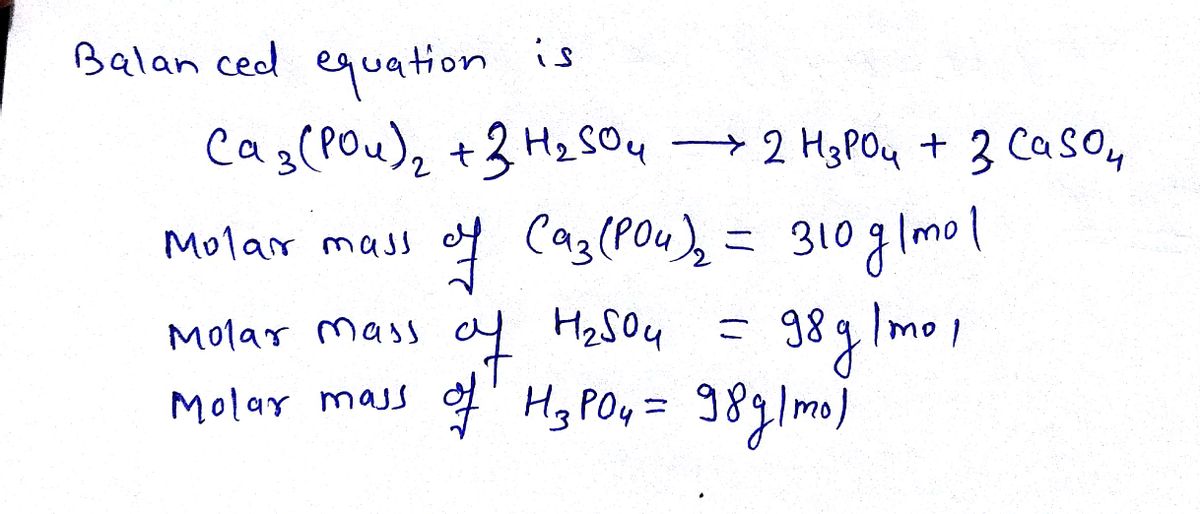 Balanced equation is
Ca₃(PO₄)₂ + 3 H₂SO₄ → 2 H₃PO₄ + 3 CaSO₄
Molar mass of Ca₃(PO₄)₂ = 310 g/mol
Molar mass of H₂SO₄ = 98 g/mol
Molar mass of H₃PO₄ = 98 g/mol